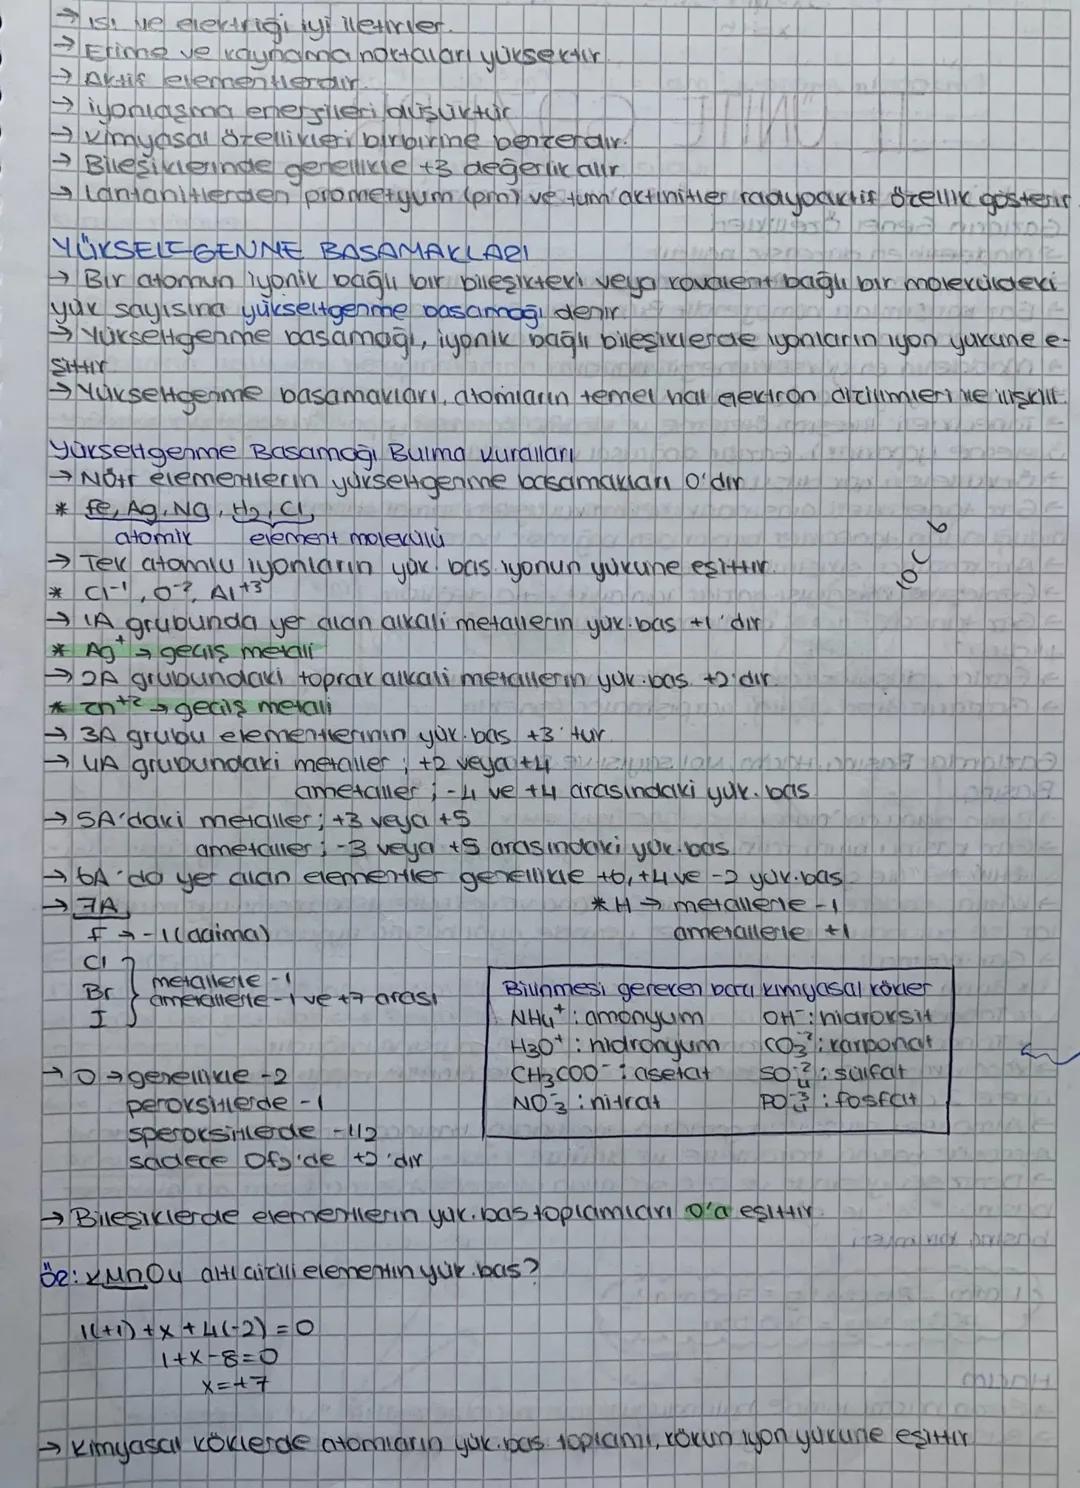 → Isı ve elektriği iyi iletirler.
→ Erime ve kaynama noktaları yüksektir.
→ Aktif elementlerdir.
→ iyonlaşma enerjileri düşüktür
→ Kimyasal özellikleri birbirine benzerdir.
→ Bileşiklerinde genellikle +3 değerlik alır
→ Lantanitlerden prometyum (pm) ve tüm aktinitler radyoaktif özellik gösterir.
YÜKSELTGENME BASAMAKLARI
→ Bir atomun iyonik bağlı bir bileşikteki veya kovalent bağlı bir moleküldeki
yük sayısına yükseltgenme basamağı denir.
→ Yükseltgenme basamağı, iyonik bağlı bileşiklerde iyonların iyon yüküne e-
şittir
→ Yükseltgenme basamakları, atomların temel hal elektron dizilimleri ile ilişkili.
Yükseltgenme Basamağı Bulma Kuralları
→ Nötr elementlerin yükseltgenme basamakları 0'dır
* Fe, Ag, Na, H₂, Cl₂
atomik element molekülü
→ Tek atomlu iyonların yük. bas. iyonun yüküne eşittir.
* Cl⁻¹, O⁻², Al⁺³
→ 1A grubunda yer alan alkali metallerin yük. bas +1'dir
* Ag⁺ → geçiş metali
→ 2A grubundaki toprak alkali metallerin yük. bas. +2'dir.
* Zn⁺² → geçiş metali
→ 3A grubu elementlerinin yük. bas +3'tür
→ 4A grubundaki metaller ; +2 veya +4
ametaller ; -4 ve +4 arasındaki yük. bas
→ 5A'daki metaller ; +3 veya +5
ametaller ; -3 veya +5 arasındaki yük. bas
→ 6A'da yer alan elementler genellikle +6, +4 ve -2 yük. bas
→ 7A * H → metallerle -1
F → -1 (daima) ametallerle +1
Cl
Br } metallerle -1
ametallerle -1 ve +7 arası
I
Bilinmesi gereken bazı kimyasal kökler
NH₄⁺ : amonyum OH⁻ : hidroksit
H3O⁺ : hidronyum CO₃⁻² : karbonat
CH₃COO⁻ : asetat SO₄⁻² : sülfat
NO⁻₃ : nitrat PO₄⁻³ : fosfat
→ O → genellikle -2
peroksitlerde -1
speroksitlerde -1/2
sadece OF₂'de +2'dir
→ Bileşiklerde elementlerin yük. bas toplamları 0'a eşittir.
Ör: KMnO₄ altı çizili elementin yük. bas?
1(+1) + x + 4(-2) = 0
1+x-8=0
x=+7
→ Kimyasal köklerde atomların yük. bas. toplamı, kökün iyon yüküne eşittir